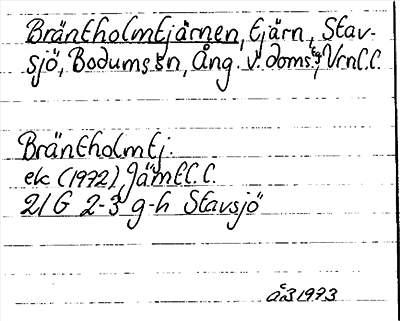 Bräntholmtjärnen, tjärn, Stav-
sjö, Bodums sn, Ång. v. doms.tg, VrnL.L.
Bräntholmtj.
ek (1972) JämtL.L.
21G 2-3 g-h Stavsjö
1973